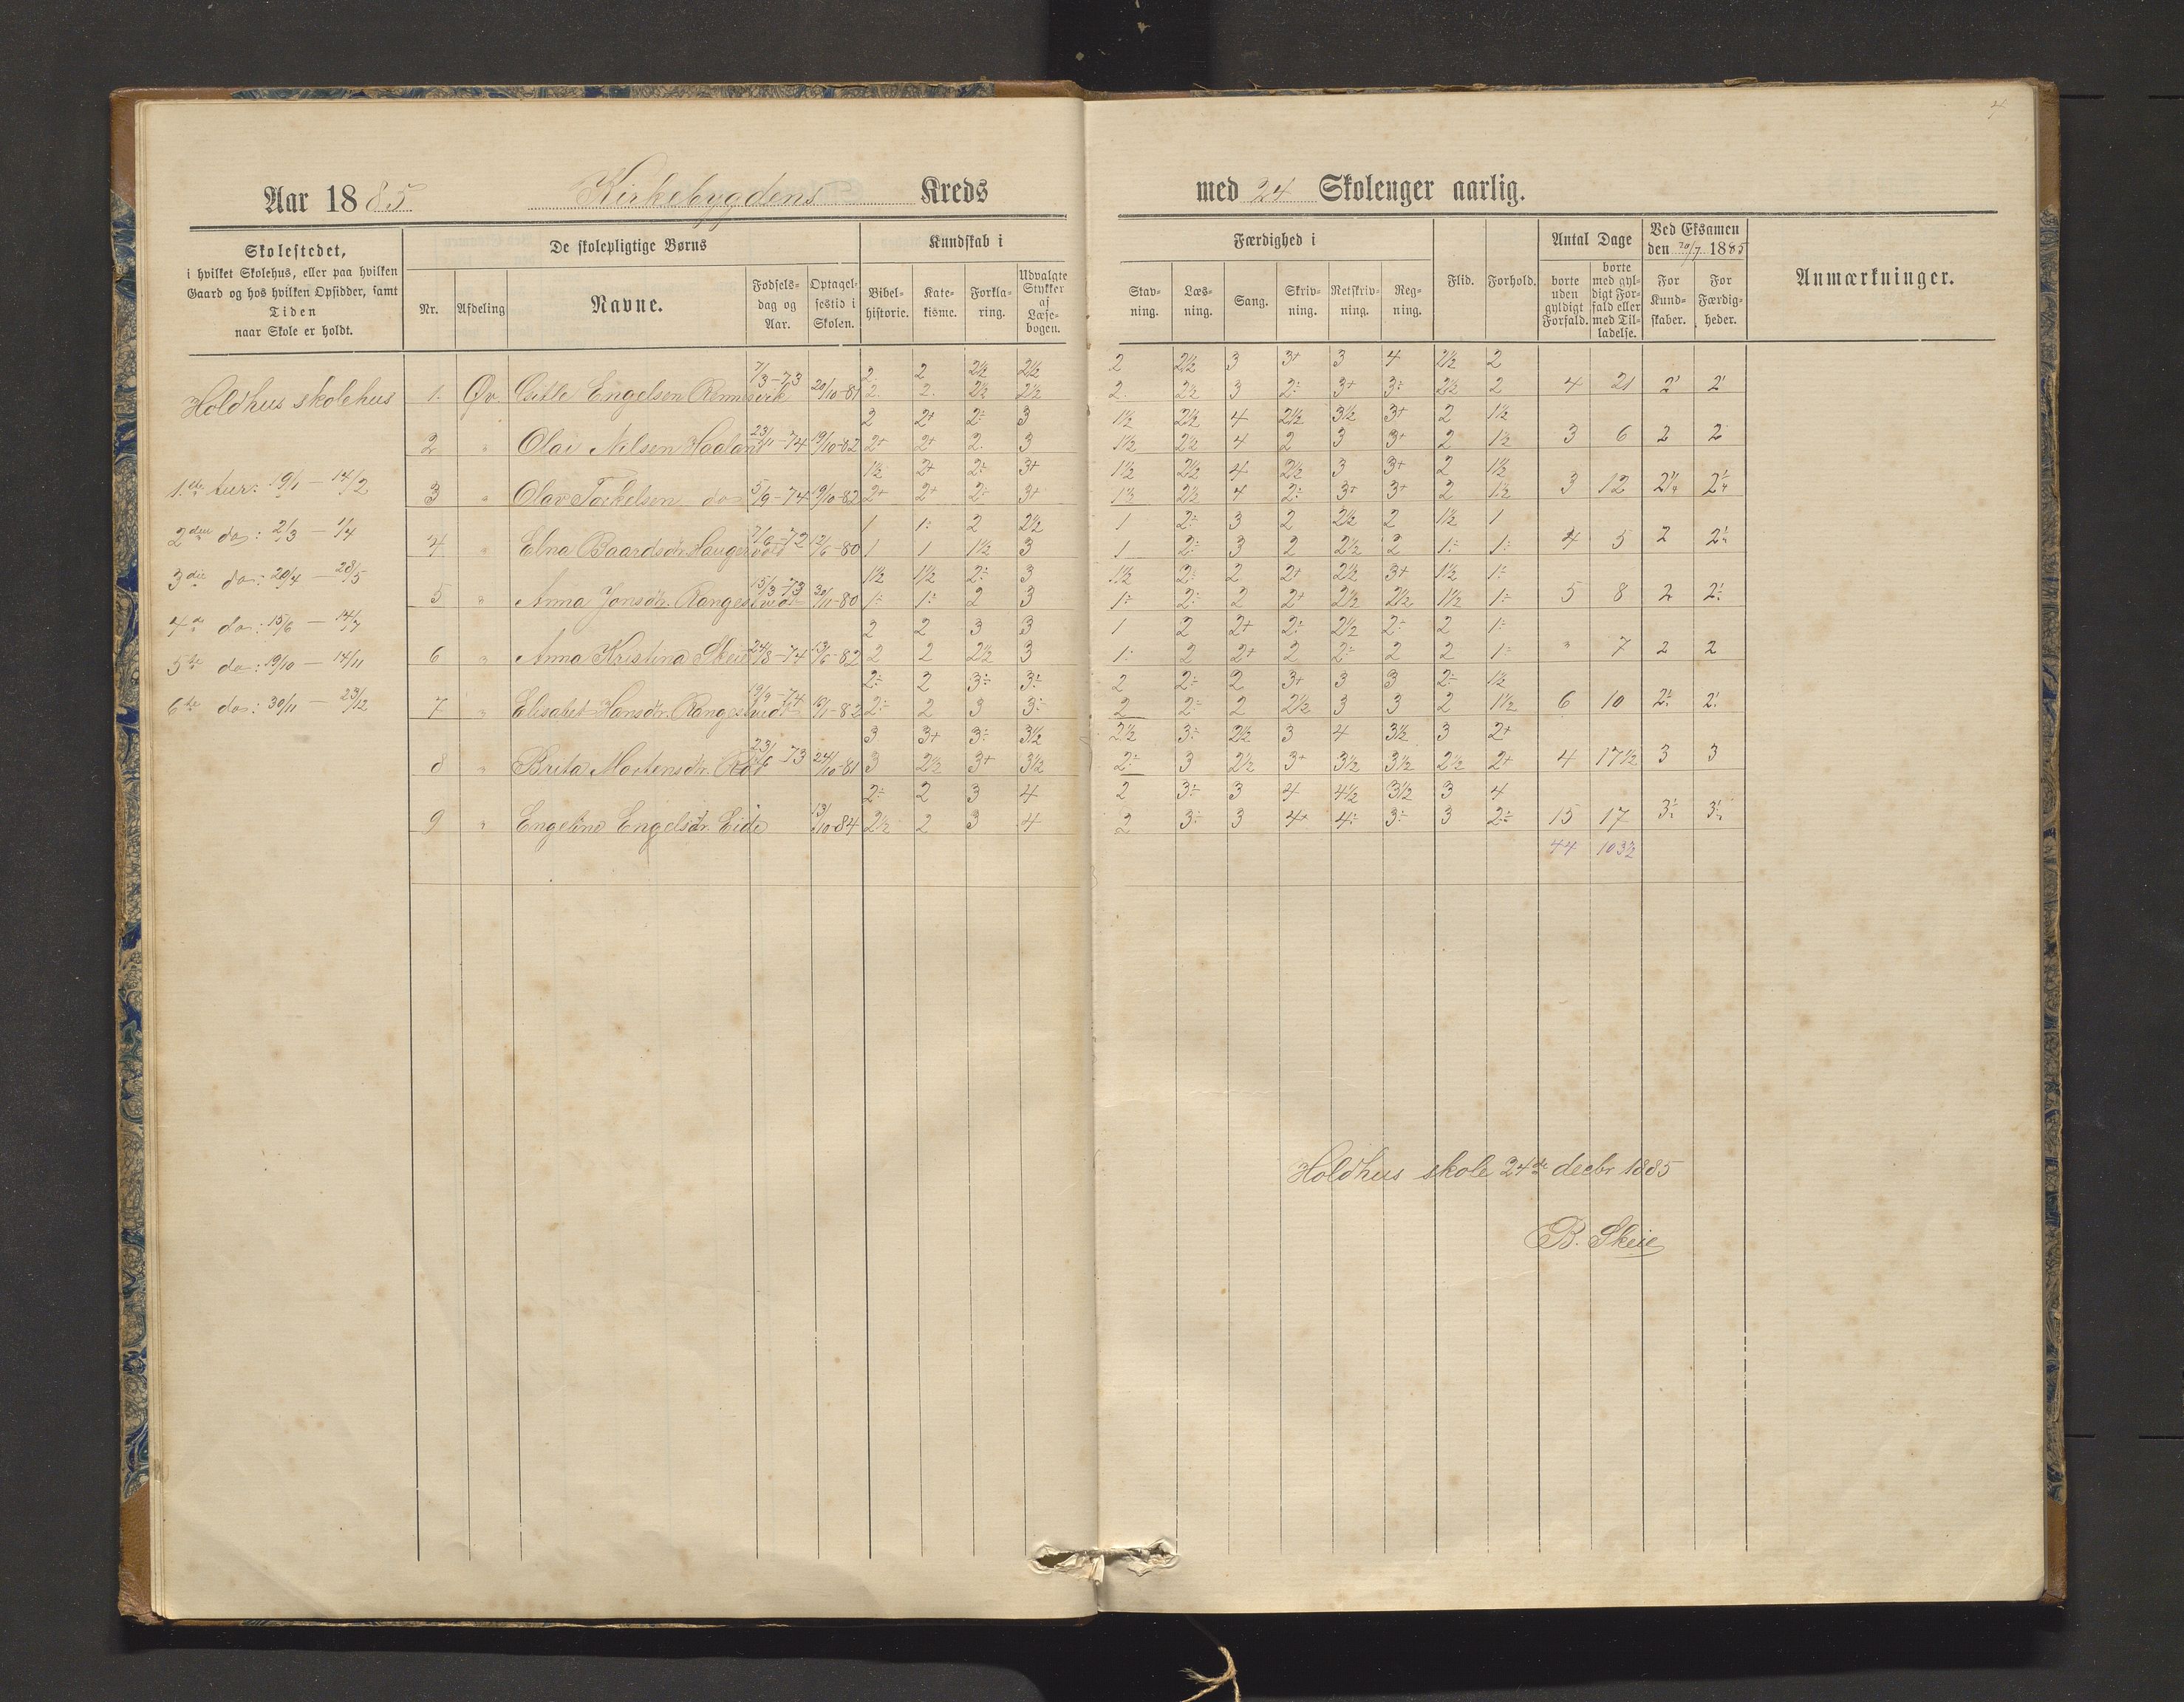 4
Aar 1885 Kirkebygdens Kreds med 24 Skoleuger aarlig.
Skolestedet, i hvilket Skolehus, eller paa hvilken Gaard og hos hvilken Opsidder, samt Tiden naar Skole er holdt.
De skolepligtige Børns
Nr. Afdeling Navne. Fødsels-dag og Aar. Optagel-sestid i Skolen.
Kundskab i
Bibel-historie. Kate-kisme. Forkla-ring. Udvalgte Stykker af Læse-bogen.
Færdighed i
Stav-ning. Læs-ning. Sang. Skriv-ning. Retskriv-ning. Reg-ning. Flid. Forhold.
Antal Dage
borte uden gyldigt Forfald. borte med gyl-digt For-fald eller med Til-ladelse.
Ved Eksamen den 20/7 1885
For Kund-skaber. For Færdig-heder.
Anmærkninger.
Holdhus skolehus
1ste tur: 19/1 — 14/2
2den do: 2/3 — 1/4
3die do: 20/4 — 28/5
4de do: 15/6 — 14/7
5te do: 19/10 — 14/11
6te do: 30/11 — 23/12
2 2 2½ 2½ 2 2½ 3 3+ 3 4 2½ 2
1. Øv. Engelsen 7/3-73 20/10-81 2. 2. 2½ 2½ 2. 2½ 3 2÷ 3+ 3÷ 2½ 2 4 21 2÷ 2÷
2 2+ 2÷ 3 1½ 2½ 4 2½ 3½ 3+ 2 1½
2 " Olai Nilsen Haaland 23/11-74 19/10-82 2+ 2+ 2. 3 1½ 2½ 4 2 3 3+ 2 1½ 3 6 2 2
1½ 2+ 2÷ 3+ 1½ 2½ 4 2½ 3 3+ 2 1½
3 " Olav Torkelsen do 5/9-74 19/10-82 2+ 2+ 2÷ 3+ 1½ 2½ 4 2÷ 3+ 3+ 2 1½ 3 12 2¼ 2¼
1 1÷ 2 2½ 1 2÷ 3 2 2½ 2 1½ 1
4 " Elna Baardsdtr. 7/6-72 12/6-80 1 1 1½ 3 1 2÷ 3 2 2½ 2 1÷ 1÷ 4 5 2 2÷
1½ 1½ 2÷ 3 1½ 2÷ 2 2+ 2½ 3+ 1½ 1÷
5 " Anna Jonsdtr. Rangestvedt 15/3-73 30/11-80 1÷ 1÷ 2 3 1÷ 2÷ 2 2+ 2½ 2½ 1½ 1÷ 5 8 2 2÷
2 2 3 3 1 2 2+ 2÷ 2½ 2÷ 2 1÷
6 " Anna Kristina Skeie 24/8-74 13/6-82 2 2 2½ 3 1÷ 2 2+ 2 2÷ 2 2 1÷ " 7 2 2
2÷ 2 3÷ 3÷ 2 2÷ 2 3+ 3 3 2÷ 1½
7 " Elisabet Hansdtr. Rangestvedt 19/9-74 13/11-82 2÷ 2 3 3÷ 2 2÷ 2 2½ 3 3 2 1½ 6 10 2÷ 2÷
3 3+ 3÷ 3½ 2½ 3÷ 2½ 3 4 3½ 3 2+
8 " Brita Mortensdtr. Rød 23/6-73 24/10-81 3 2½ 3+ 3½ 2÷ 3 2½ 3+ 3½ 3½ 2½ 2+ 4 17½ 3 3
2÷ 2 3 4 2 3÷ 3 4 4½ 3½ 3 4
9 " Engeline Engelsdtr. Eide 13/10-84 2½ 2 3 4 2 3÷ 3 4+ 4÷ 3÷ 3 2÷ 15 17 3÷ 3÷
44 103½
Holdhus skole 24de decbr 1885
B. Skeie